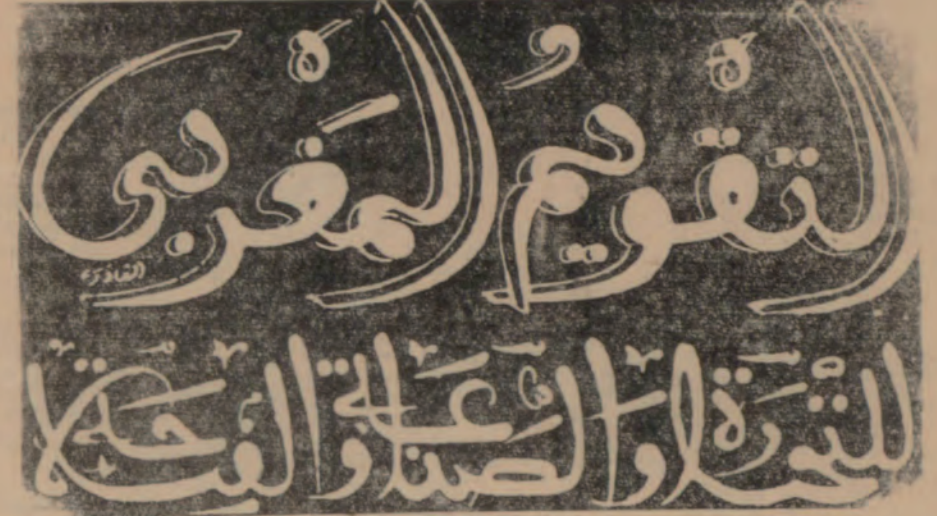 التقويم المغربي
القادري
للتجارة والصناعة والفلاحة